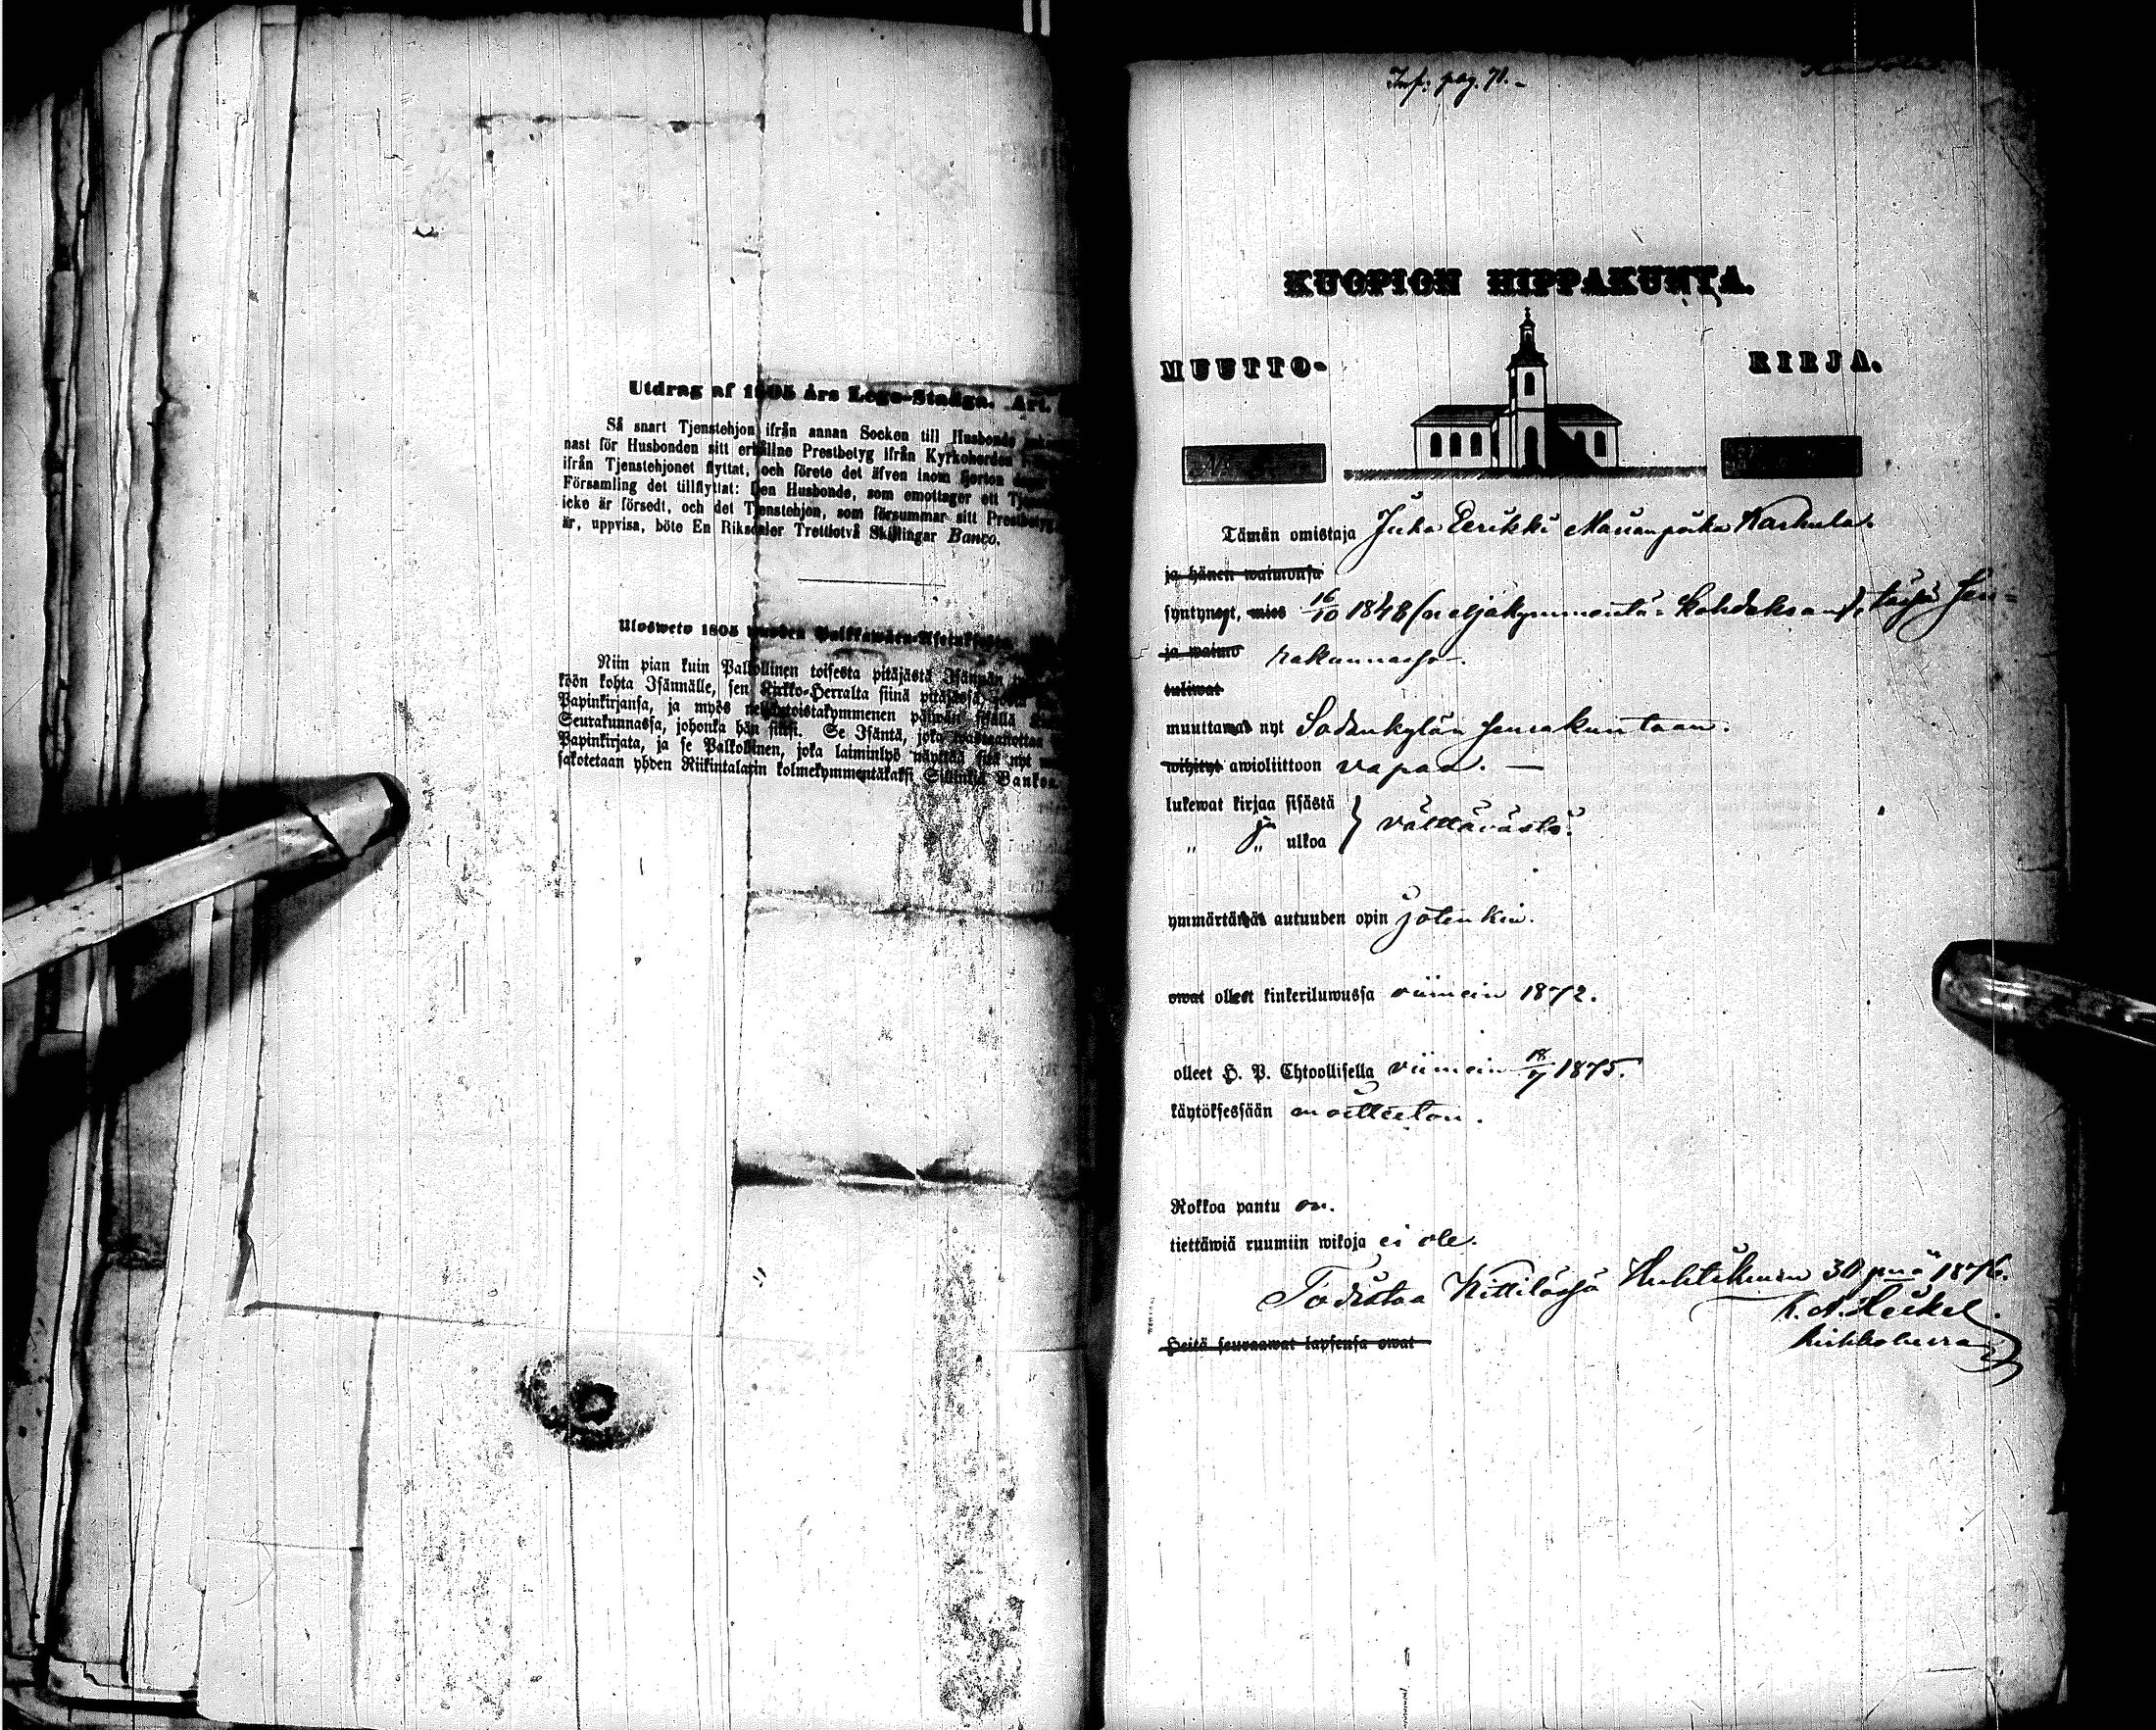 Utdrag af 1805 års Lego-Stadga. Art.
Så snart Tjenstehjon ifrån annan Socken till Husbonde
nast för Husbonden sitt erhållne Prestbetyg ifrån Kyrkoherden
ifrån Tjenstehjonet flyttat, och förete det äfven inom fjorton dagar
Församling det tillflyttat: Den Husbonde, som emottager ett
icke är försedt, och det Tjenstehjon, som försummar sitt Prestbetyg
är, uppvisa, böte En Riksdaler Trettiotvå Skillingar Banco.
Ulosweto 1805 wuoden Palkkawäen-Asetuksesta
Niin pian kuin Palkollinen toisesta pitäjästä Isännän
köön kohta Isännälle, sen Kirkko-Herralta siinä pitäjässä,
Papinkirjansa, ja myös neljäntoistakymmenen päiwän sisällä
Seurakunnassa, johonka hän siirsi. Se Isäntä, joka wastaanottaa
Papinkirjata, ja se Palkollinen, joka laiminlyö näyttää sitä nyt
sakotetaan yhden Riikintalarin kolmekymmentäkaksi Sillinkiä Bankoa.
Inf. pag. 71.
KUOPION HIPPAKUNTA.
MUUTTO- KIRJA.
Tämän omistaja Juho Eerikki Marianpoika Karhula.
ja hänen waimonsa
syntynyt, mies 16/10 1848 (neljäkymmentä-kahdeksan), täsä Seu-
ja waimo rakunnassa.
tuliwat
muuttawat nyt Sodankylän seurakuntaan.
wihityt awioliittoon vapaa. —
lukewat kirjaa sisästä
" ja " ulkoa } välttävästi.
ymmärtäwät autuuden opin jotenkin.
owat olleet kinkeriluwussa viimein 1872.
olleet H. P. Ehtoollisella viimein 18/7 1875.
käytöksessään moitteeton.
Rokkoa pantu on.
tiettäwiä ruumiin wikoja ei ole.
Todistaa Kittilässä Huhtikuun 30 pnä 1876.
K. A. Heikel.
kirkkoherra
Heitä seuraawat lapsensa owat